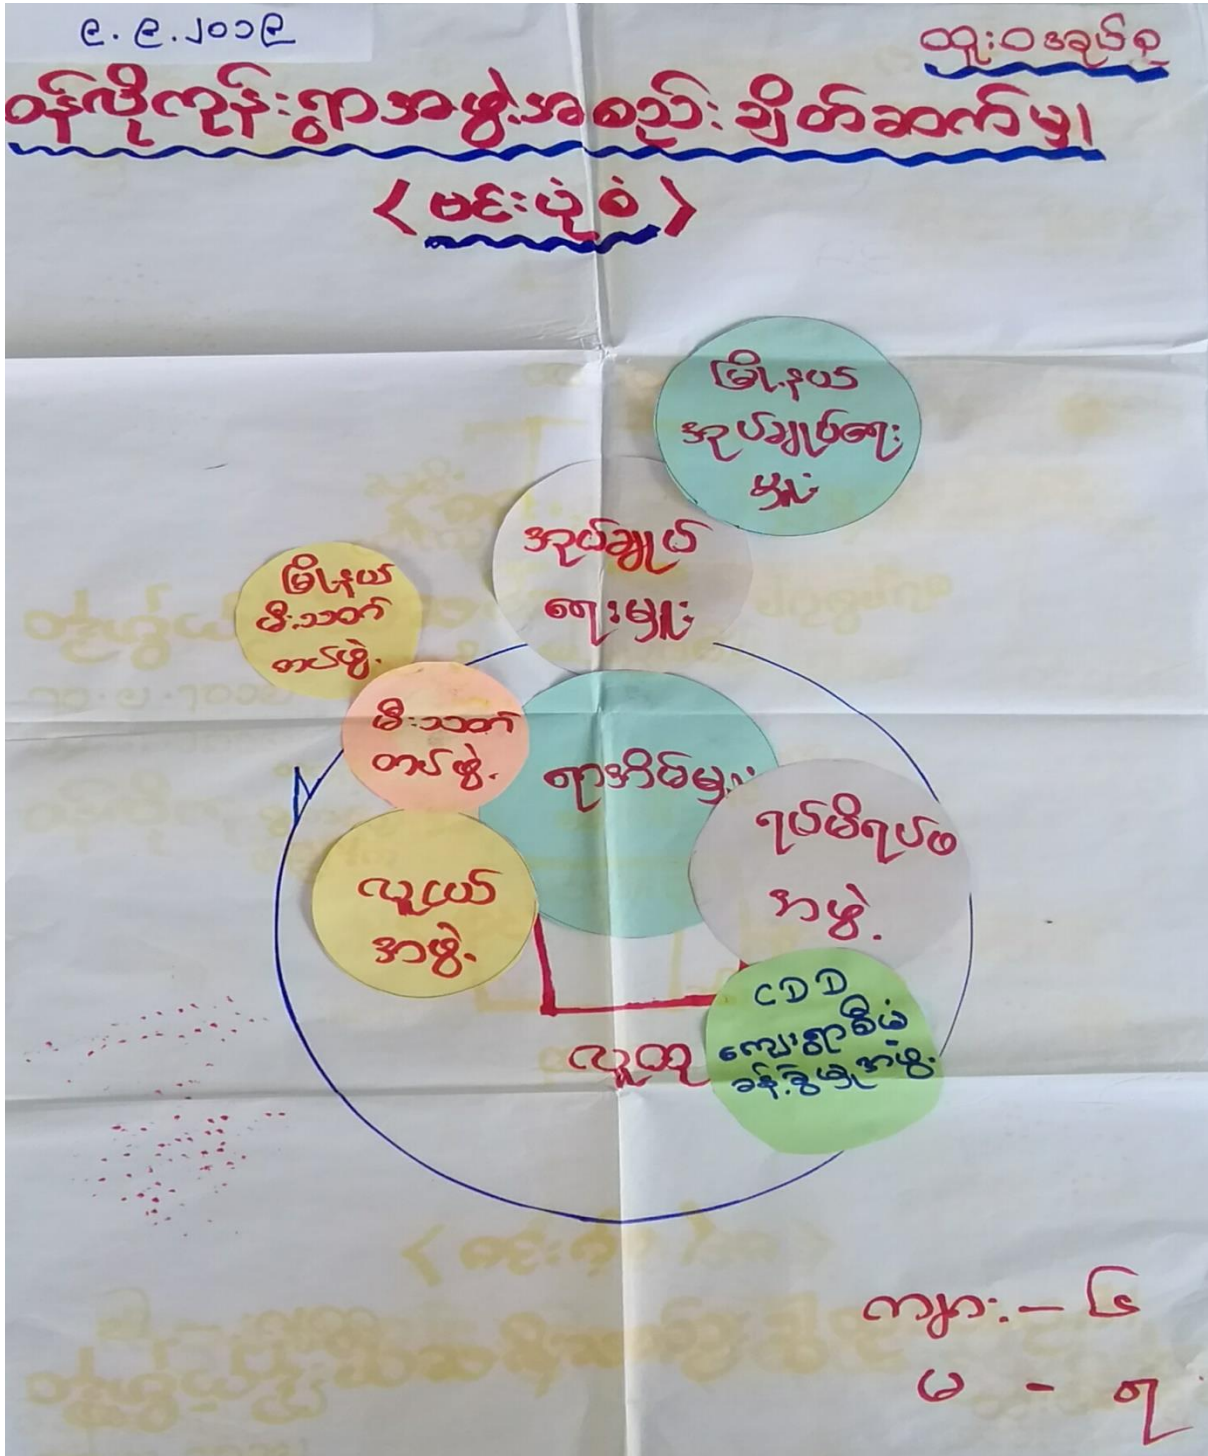 ၉.၉.၂၀၁၉
ထူးဝအုပ်စု
ဝန်လိုကုန်းရွာအဖွဲ့အစည်းချိတ်ဆက်မှု
(ဗင်းပုံစံ)
မြို့နယ်
အုပ်ချုပ်ရေး
မှူး
အုပ်ချုပ်
ရေးမှူး
မြို့နယ်
မီးသတ်
တပ်ဖွဲ့
မီးသတ်
တပ်ဖွဲ့
ရာအိမ်မှူး
ရပ်မိရပ်ဖ
အဖွဲ့
လူငယ်
အဖွဲ့
CDD
ကျေးရွာစီမံ
ခန့်ခွဲမှုအဖွဲ့
လူထု
ကျား - ၆
မ - ၇